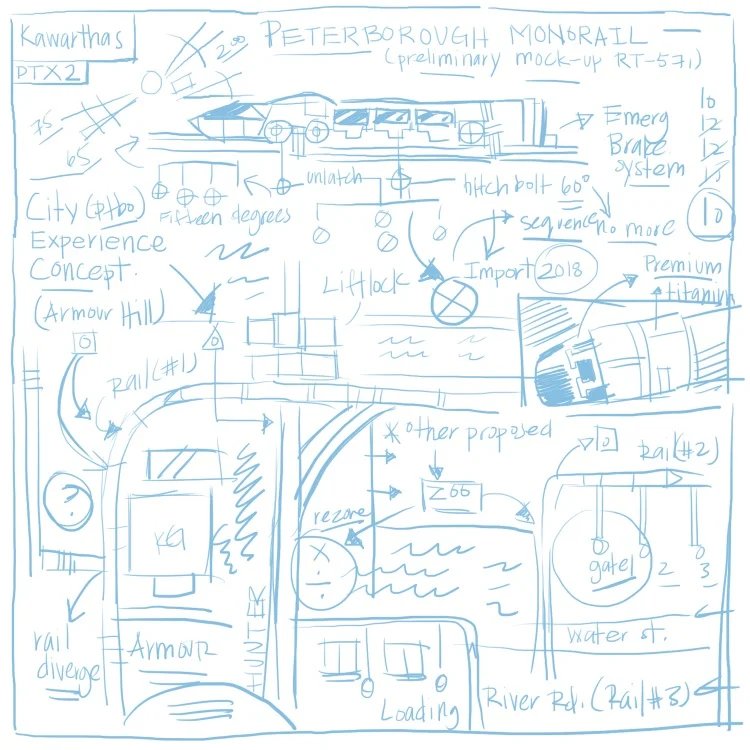 Kawarthas
PTX2
200
PETERBOROUGH MONORAIL
(preliminary mock-up RT-571)
75
65
Emerg
Brake
System
10
12
12
10
unlatch
hitch bolt 60°
Fifteen degrees
sequence no more
City (ptbo)
Experience
Concept.
(Armour Hill)
Liftlock
Import 2018
Premium
titanium
Rail (#1)
* other proposed
Z66
rezone
Rail (#2)
?
gate 1 2 3
Water st.
HUNTER
rail
diverge
Armour
Loading
River Rd. (Rail #3)